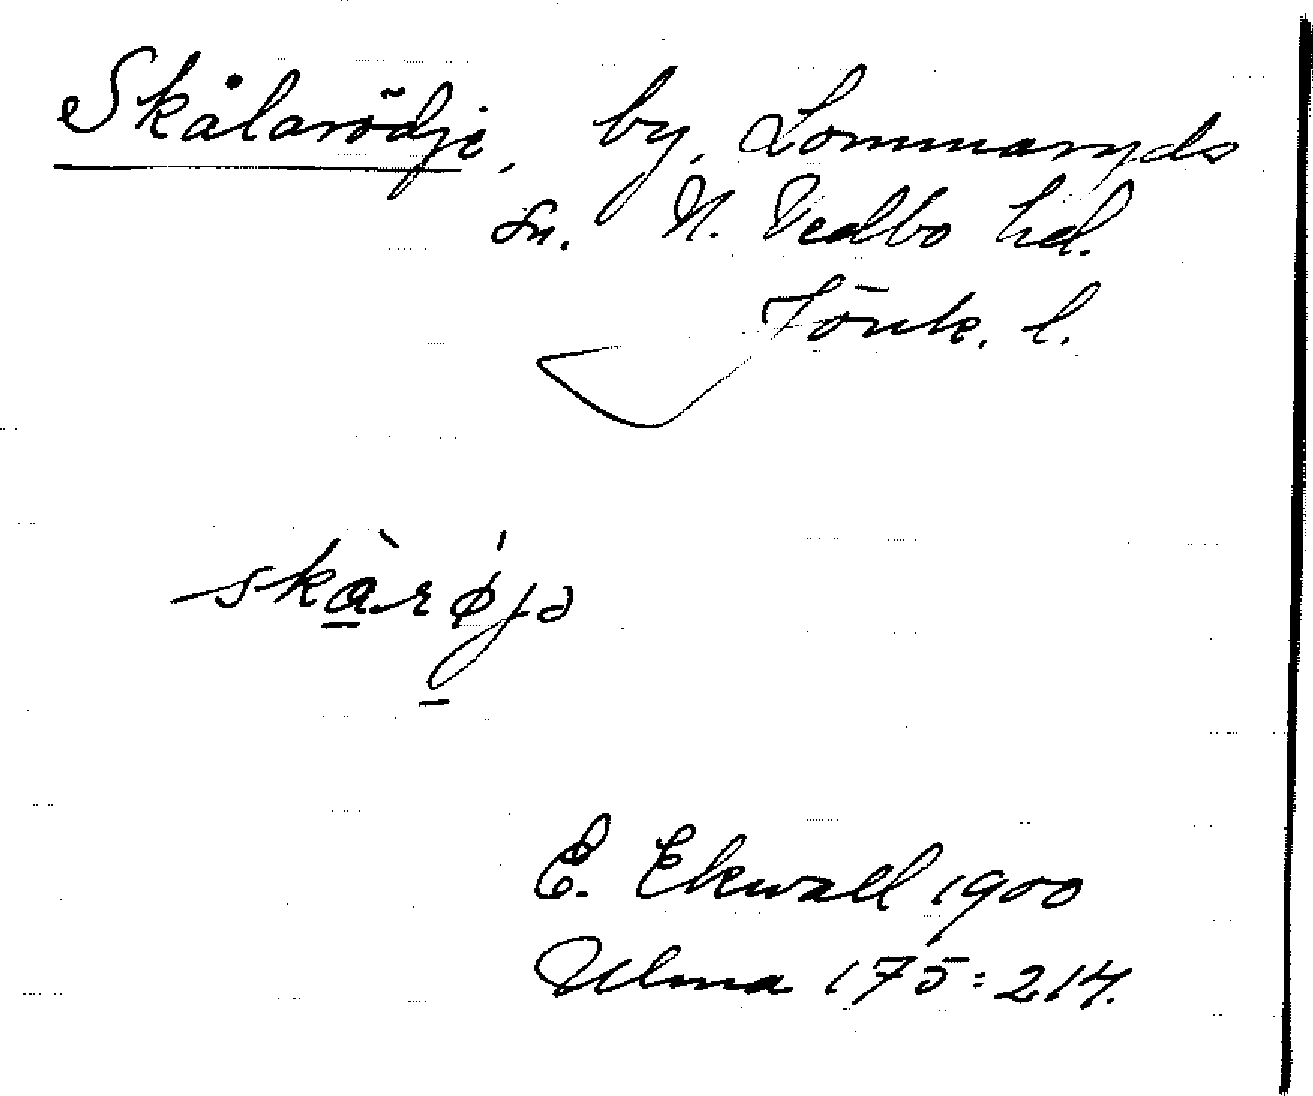 Skålarödje, by, Lommaryds
sn. N. Vedbo hd.
Jönk. l.
skàrø̍jə
E. Ekwall 1900
Ulma 175:214.